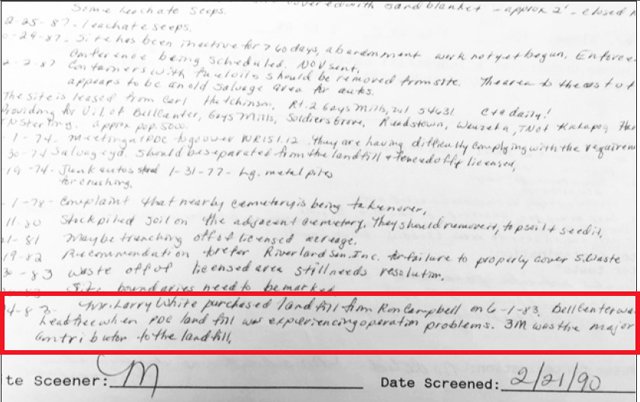 Some leachate seeps. covered with sand blanket - approx 2' - closed
2-25-87 - leachate seeps.
-24-87. Site has been inactive for > 60 days, abandonment work not yet begun. Enforce
Conference being scheduled. NOV sent.
2-2-87 Containers with fuel oils should be removed from site. The area to the east of
appears to be an old salvage area for autos.
The site is leased from Carl Hutchinson, Rt. 2 Gays Mills, 54631 daily!
Providing for Vil. of Bell Center, Gays Mills, Soldiers Grove, Readstown, Wauzeka,
approx pop. 5000.
1-74. meeting at to go over NR151.12. They are having difficulty complying with the requirem
30-74 Salvage yd. should be separated from the landfill & fenced off & licensed,
19-74. Junk autos 1-31-77- Lg. metal piles
for crushing.
-1-78- Complaint that nearby cemetery is being taken over,
11-80 Stockpiled soil on the adjacent cemetery. They should remove it, topsoil & seed it,
-81 Maybe trenching off of licensed acreage.
19-82 Recommendation to refer Riverland San. Inc. for failure to properly cover S. Waste
-83 Waste off of licensed area still needs resolution.
Site boundaries need to be marked
4-83- Larry White purchased landfill from Ron Campbell on 6-1-83. Bell Center was
head tree when PDC land fill was experiencing operation problems. 3M was the major
Contributor to the landfill,
te Sceener: Date Screened: 2/21/90